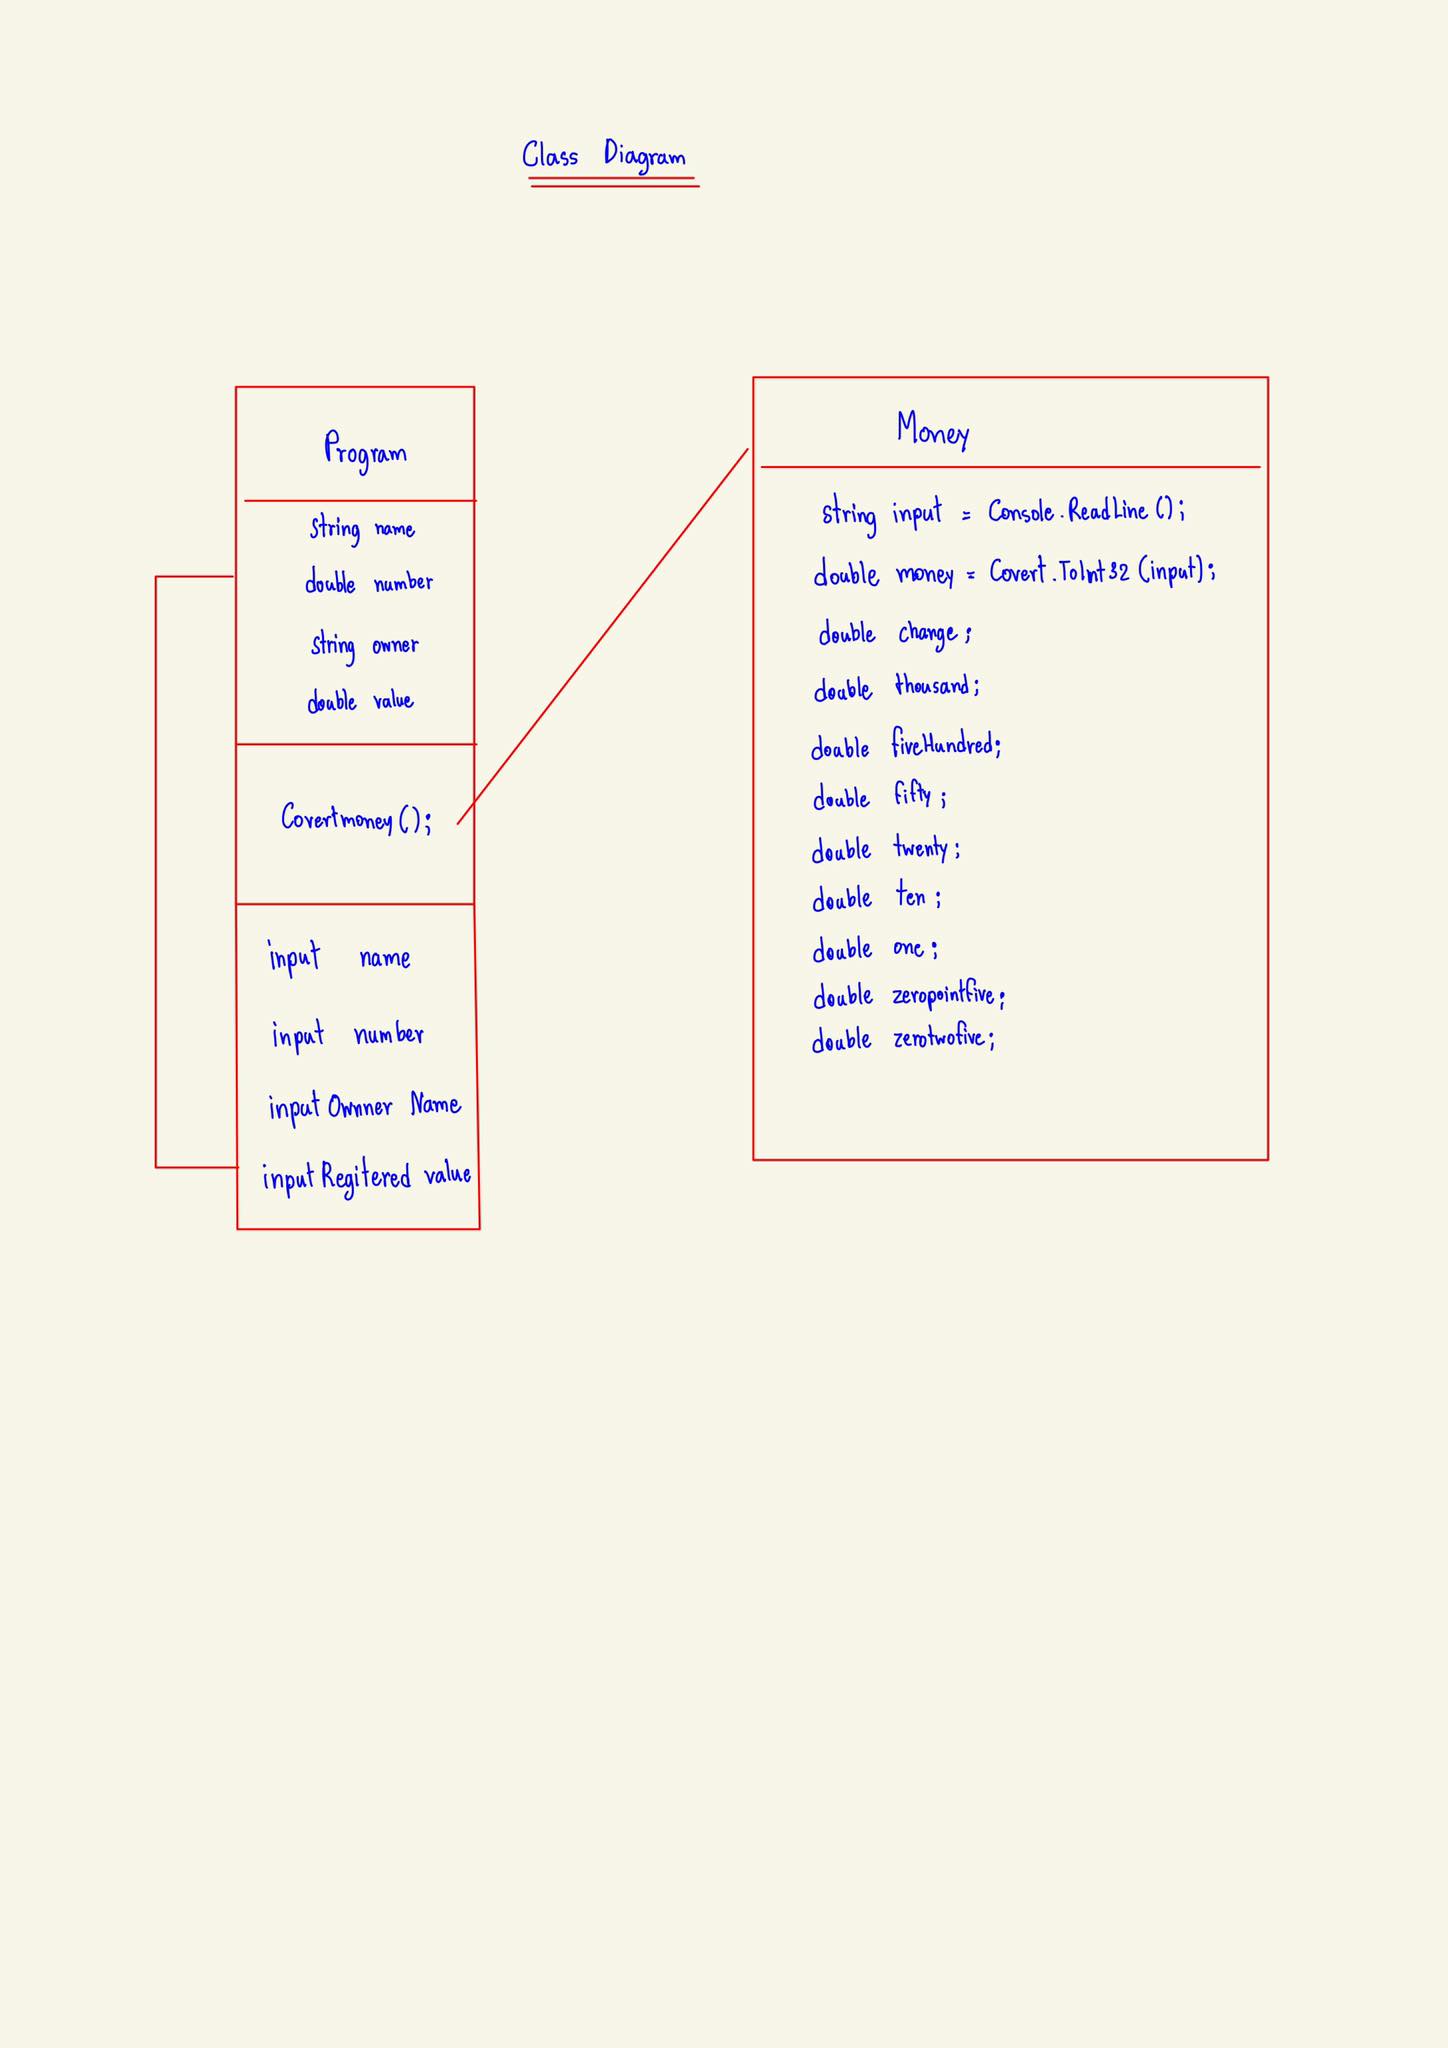 Class Diagram
Program
string name
double number
string owner
double value
Covertmoney();
input name
input number
input Ownner Name
input Regitered value
Money
string input = Console.ReadLine();
double money = Covert.ToInt32(input);
double change;
double thousand;
double fiveHundred;
double fifty;
double twenty;
double ten;
double one;
double zeropointfive;
double zerotwofive;